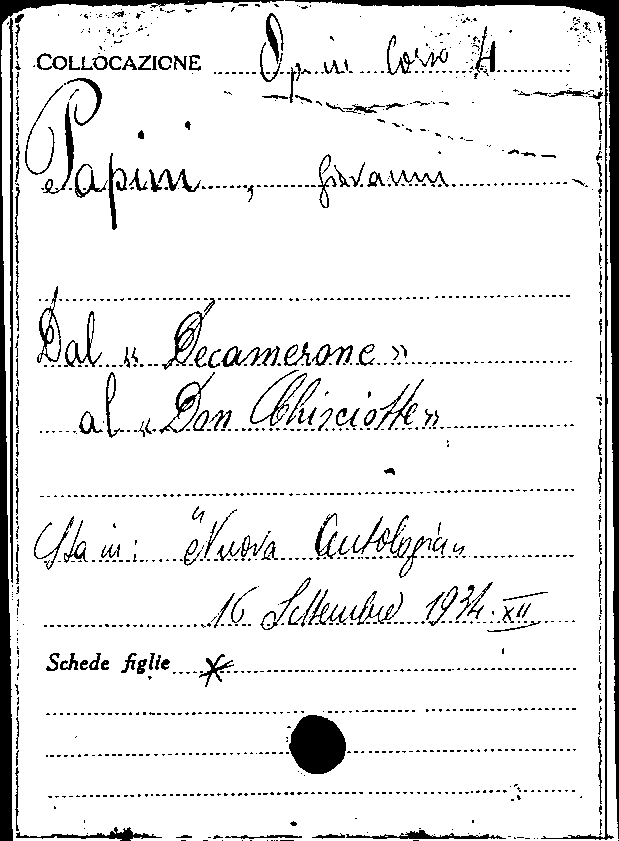 COLLOCAZIONE Corso 4
Papini, Giovanni
Dal « Decamerone »
al « Don Chisciotte »
Sta in: "Nuova Antologia„
16 Settembre 1934. XII
Schede figlie